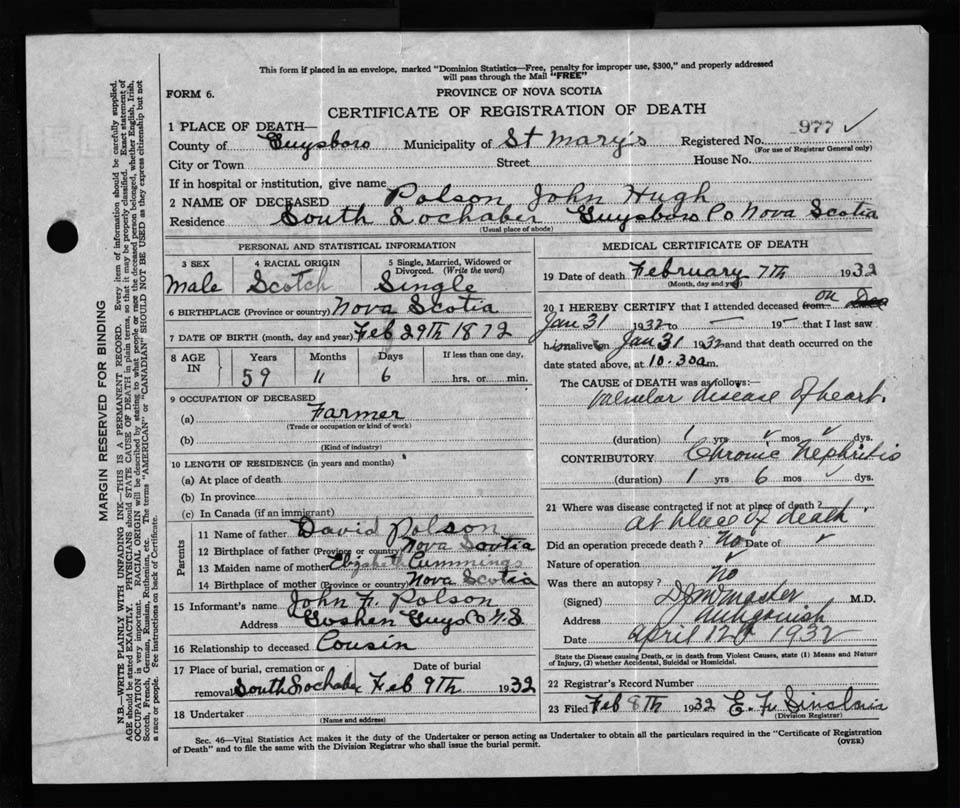 This form if placed in an envelope, marked "Dominion Statistics—Free, penalty for improper use, $300," and properly addressed
will pass through the Mail "FREE"
FORM 6.
PROVINCE OF NOVA SCOTIA
CERTIFICATE OF REGISTRATION OF DEATH
1 PLACE OF DEATH—
977 ✓
County of Guysboro Municipality of St Mary's Registered No.
(For use of Registrar General only)
City or Town Street House No.
If in hospital or institution, give name
2 NAME OF DECEASED Polson John Hugh
Residence South Lochaber Guysboro Co Nova Scotia
(Usual place of abode)
PERSONAL AND STATISTICAL INFORMATION
3 SEX 4 RACIAL ORIGIN 5 Single, Married, Widowed or
Divorced. (Write the word)
Male Scotch Single
6 BIRTHPLACE (Province or country) Nova Scotia
7 DATE OF BIRTH (month, day and year) Feb 29th 1872
8 AGE IN Years Months Days If less than one day,
59 11 6 hrs. or min.
9 OCCUPATION OF DECEASED
(a) Farmer
(Trade or occupation or kind of work)
(b)
(Kind of industry)
10 LENGTH OF RESIDENCE (in years and months)
(a) At place of death
(b) In province
(c) In Canada (if an immigrant)
Parents
11 Name of father David Polson
12 Birthplace of father (Province or country) Nova Scotia
13 Maiden name of mother Elizabeth Cummings
14 Birthplace of mother (Province or country) Nova Scotia
15 Informant's name John F. Polson
Address Goshen Guys Co N.S
16 Relationship to deceased Cousin
17 Place of burial, cremation or Date of burial
removal South Lochaber Feb 9th 1932
18 Undertaker
(Name and address)
MEDICAL CERTIFICATE OF DEATH
19 Date of death February 7th 1932
(Month, day and year)
20 I HEREBY CERTIFY that I attended deceased from on
Jan 31 1932 to — 19— that I last saw
him alive Jan 31 1932 and that death occurred on the
date stated above, at 10.30 a m.
The CAUSE OF DEATH was as follows:—
Valvular disease of heart.
(duration) 1 yrs ✓ mos ✓ dys.
CONTRIBUTORY Chronic Nephritis
(duration) 1 yrs 6 mos dys.
21 Where was disease contracted if not at place of death?
At place of death
Did an operation precede death? No Date of ✓
Nature of operation ✓
Was there an autopsy? No
(Signed) M.D.
Address
Date April 12th 1932
State the Disease causing Death, or in death from Violent Causes, state (1) Means and Nature
of Injury, (2) whether Accidental, Suicidal or Homicidal.
22 Registrar's Record Number
23 Filed Feb 8th 1932 E. F. Sinclair
(Division Registrar)
Sec. 46—Vital Statistics Act makes it the duty of the Undertaker or person acting as Undertaker to obtain all the particulars required in the "Certificate of Registration
of Death" and to file the same with the Division Registrar who shall issue the burial permit.
(OVER)
MARGIN RESERVED FOR BINDING
N.B.—WRITE PLAINLY WITH UNFADING INK—THIS IS A PERMANENT RECORD. Every item of information should be carefully supplied.
AGE should be stated EXACTLY. PHYSICIANS should STATE CAUSE OF DEATH in plain terms, so that it may be properly classified. Exact statement of
OCCUPATION is very important. RACIAL ORIGIN will be described by stating to what people or race the deceased person belonged, whether English, Irish,
Scotch, French, German, Russian, Ruthenian, etc. The terms "AMERICAN" or "CANADIAN" SHOULD NOT BE USED as they express citizenship but not
a race or people. Fee instructions on back of Certificate.